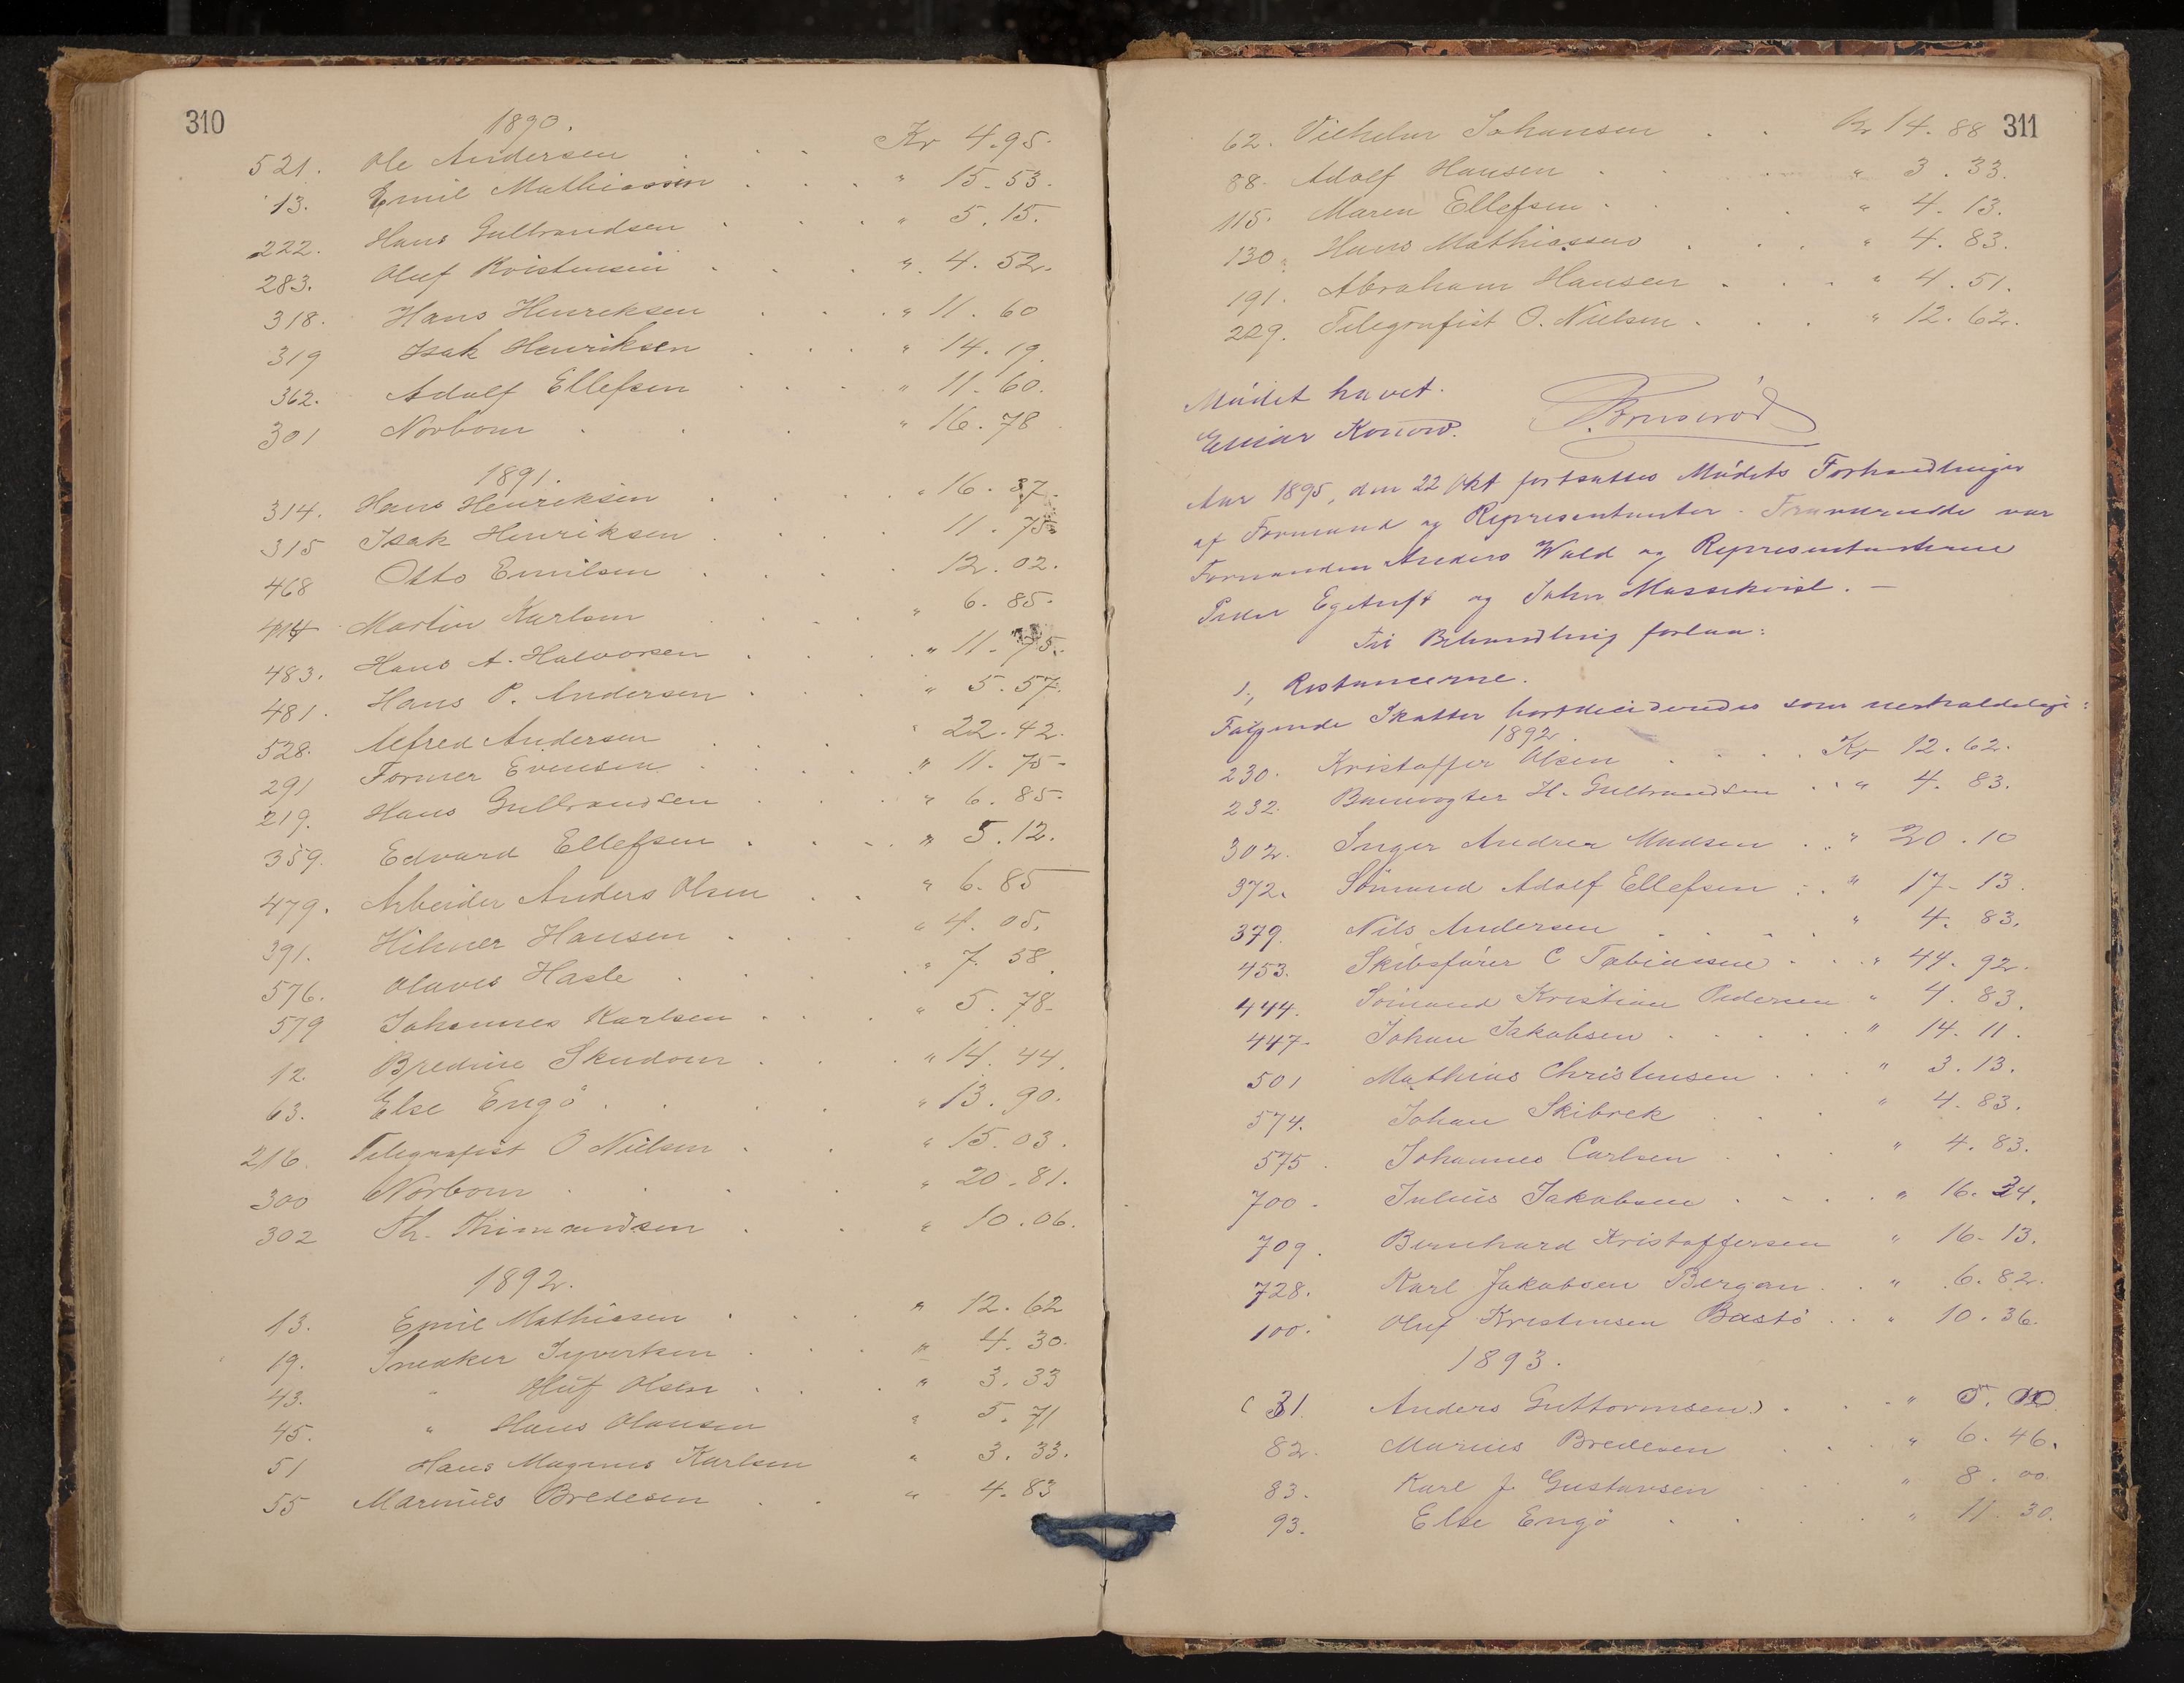 310
1890.
521. Ole Andersen . . . Kr 4.95.
13. Emil Mathiassen . . . " 15.53.
222. Hans Gulbrandsen . . . " 5.15.
283. Oluf Kristensen . . . " 4.52.
318. Hans Henreksen . . . " 11.60
319 Isak Henriksen . . . " 14.19.
362. Adolf Ellefsen . . . " 11.60.
301 Norbom . . . " 16.78
1891.
314. Hans Henriksen . . . " 16.37.
315 Isak Henriksen . . . 11.75
468 Otto Emilsen . . . 12.02.
414 Martin Karlsen . . . " 6.85.
483. Hans A. Halvorsen . . . " 11.75.
481. Hans P. Andersen . . . " 5.57.
528. Alfred Andersen . . . " 22.42.
291 Former Evensen . . . " 11.75-
219. Hans Gulbrandsen . . . " 6.85.
359. Edvard Ellefsen . . . " 5.12.
479. Arbeider Anders Olsen . . " 6.85
391. Hilmer Hansen . . . " 4.05.
576. Olaves Hasle . . . " 7.58.
579 Johannes Karlsen . . . " 5.78-
12. Bredine Skudom . . . " 14.44.
63. Else Engö . . . " 13.90.
216. Telegrafist O Nielsen . . " 15.03.
300 Norbom . . . " 20.81.
302 Th. Thimandsen . . " 10.06.
1892.
13. Emil Mathiesen . . . " 12.62
19. Snedker Syvertsen . . . " 4.30.
43. " Oluf Olsen . . . " 3.33
45. " Hans Olausen " 5.71
51 Hans Magnus Karlsen " 3.33.
55 Marinus Bredesen . . " 4.83
311
62. Vilhelm Johansen . . Kr 14.88
88. Adolf Hansen . . . " 3.33.
115. Maren Ellefsen . . . " 4.13.
130. Hans Mathiassen . . . " 4.83.
191. Abraham Hansen . . . " 4.51.
229. Telegrafist O. Nielsen . . . " 12.62.
Mödet hævet.
Einar Konow.
Aar 1895, den 22 Okt fortsattes Mödets Forhandlinger
af Formand og Repræsentanter. Tilværende var
Formanden Anders Wold og Repræsentanterne
Peder og John
Til Behandling forlaa:
1, Restancerne.
Fölgende Skatter bortdecideredes som uerholdelige:
1892
230. Kristoffer Olsen . . . Kr 12.62.
232. Banevogter H. Gulbrandsen . . " 4.83.
302. Inger Andrea Madsen . . " 20.10
372. Sömand Adolf Ellefsen . . " 17-13.
379. Nils Andersen . . . " 4.83.
453. Skibsförer C Tobiassen . . . " 44.92.
444. Sömand Kristian Pedersen " 4.83.
447- Johan Jakobsen . . . " 14.11.
501 Mathias Christensen . . . " 3.13.
574. Johan Skibrek . . . " 4.83.
575. Johannes Carlsen . . . " 4.83.
700. Julius Jakobsen . . . " 16.24.
709. Bernhard Kristoffersen " 16-13.
728. Karl Jakobsen Bergan . . " 6.82.
100. Oluf Kristensen Bastö . . " 10.36.
1893.
( 31. Anders Guttormsen) . . . "
82. Marius Bredesen . . . " 6.46.
83. Karl J. Gustavsen . . " 8.00.
93. Else Engö . . . " 11.30.